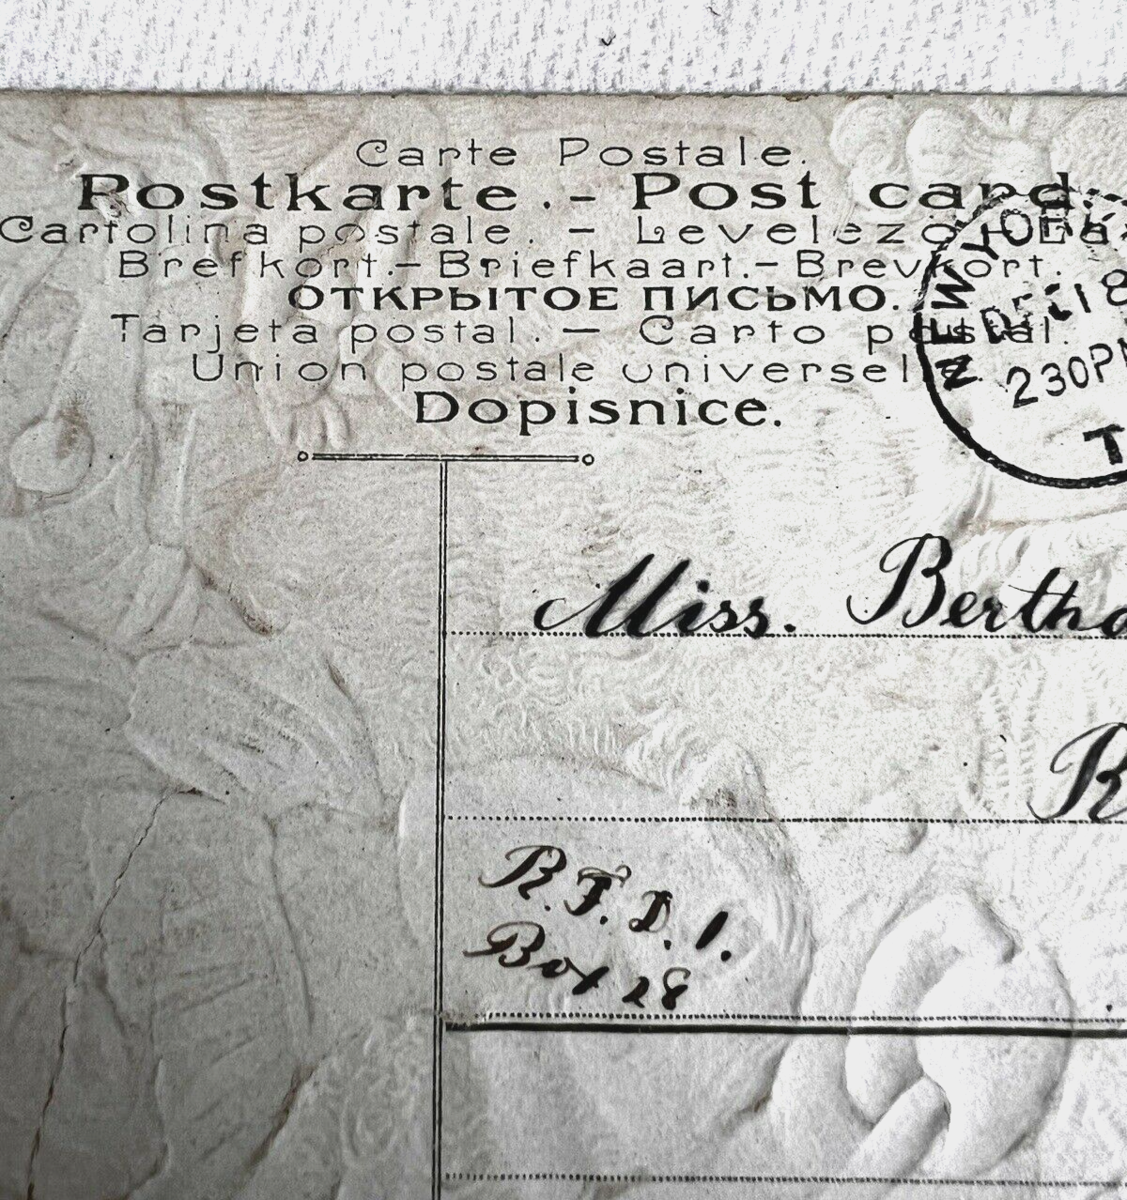 Carte Postale.
Postkarte. - Post card.
Cartolina postale. - Levelezö
Brefkort. - Briefkaart. - Brevkort.
ОТКРЫТОЕ ПИСЬМО.
Tarjeta postal. - Carto postal.
Union postale universelle.
Dopisnice.
NEW YORK
DEC 18
230PM
Miss. Bertha
R.F.D. 1.
Box 28